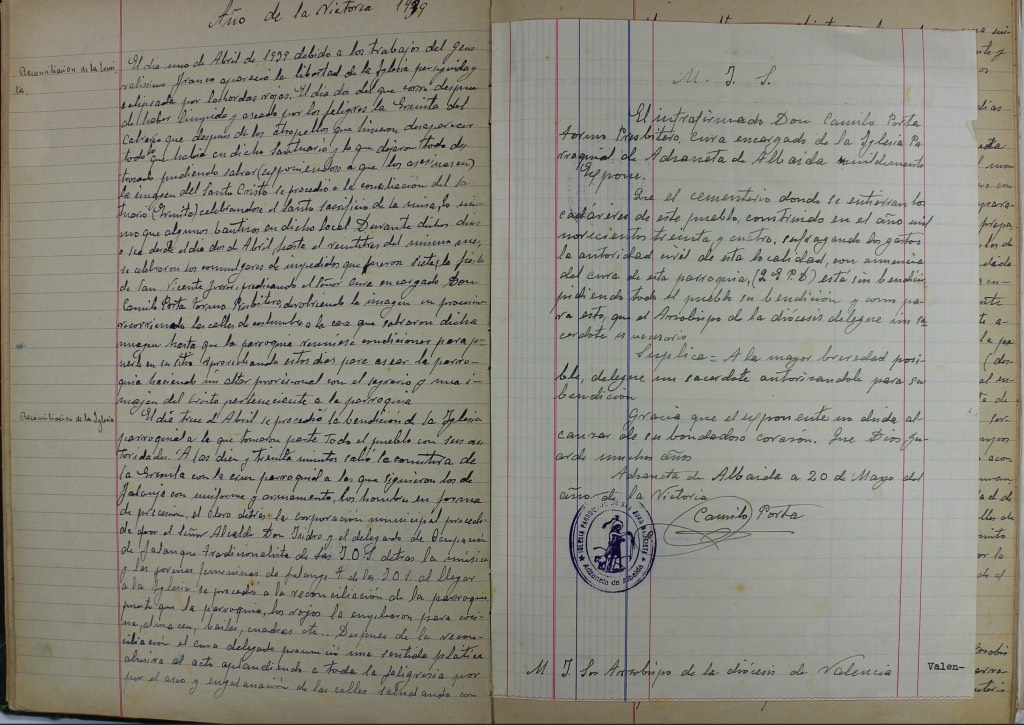 Año de la Victoria 1939
Reconciliacion de la Ermi
ta.
El dia uno de Abril de 1939 debido a los trabajos del gene
ralisimo Franco apareció la libertad de la Iglesia perseguida y
eclipsada por las hordas rojas. El dia dos del que corre despues
de haber limpiado y aseado por los feligreses la Ermita del
Calvario que despues de los atropellos que hicieron desaparecer
todo lo que habia en dicho Santuario y lo que dejaron todo des
trozado pudiendo salvar (exponiendose a que los asesinasen)
la imagen del Santo Cristo se procedió a la conciliación del
(Ermita) celebrandose el Santo sacrificio de la misa, lo mis
mo que algunos bautizos en dicho local. Durante dichos dias
o sea desde el dia dos de Abril hasta el veintitres del mismo mes,
se celebraron los comulgares de impedidos que fueron siete, la fiesta
de San Vicente predicando el señor Cura encargado Don
Camilo Porta Tormo Presbitero, devolviendo la imagen en procesion
recorriendo las calles de costumbre a la casa que salvaron dicha
imagen hasta que la parroquia reuniese condiciones para po
nerle en su sitio. Aprovechando estos dias para asear la parro
quia haciendo un altar provisional con el sagrario y una i-
magen del Cristo perteneciente a la parroquia
Reconciliación de la Iglesia
El dia trece de Abril se procedió la bendición de la Iglesia
parroquial a la que tomaron parte todo el pueblo con sus au
toridades. A las diez y treinta minutos salió la comitiva de
la Ermita con la cruz parroquial a las que siguieron los de
falange con uniforme y armamento, los hombres en forma
de procesión, el clero detras la corporación municipal presedi
da por el señor Alcalde Don Isidro y el delegado de
de falange tradicionalista de las J.O.S. detras la música
y las jovenes femeninas de falange de las J.O.S. al llegar
a la Iglesia se procedio a la reconciliación de la parroquia
puesto que la parroquia, los rojos la emplearon para coci
na, almacen, bailes, cuadras etc... Despues de la recon-
ciliación el cura delegado pronunció una sentida plática
alusiva al acto aplaudiendo a toda la feligresia por
por el aseo y engalanación de las calles saludando con
M. I. S.
El infrafirmado Don Camilo Porta
Tormo Presbitero, Cura encargado de la Iglesia Pa
rroquial de Adzaneta de Albaida humildemente
Expone.
Que el cementerio donde se entierran los
cadáveres de este pueblo, construido en el año mil
novecientos treinta y cuatro, sufragando los gastos
la autoridad civil de esta localidad, con anuencia
del cura de esta parroquia, (q. e. p. d.) está sin bendecir,
pidiendo todo el pueblo su bendición y como pa
ra esto, que el Arzobispo de la diócesis delegue un sa
cerdote es necesario
Suplica = A la mayor brevedad posi-
ble, delegue un sacerdote autorizandole para su
bendicion
Gracia que el exponente no duda al
canzar de su bondadoso corazón. Que Dios gu
arde muchos años
Adzaneta de Albaida a 20 de Mayo del
año de la Victoria
Camilo Porta
IGLESIA PARROQUIAL DE SAN JUAN BAUTISTA
Adzaneta de Albaida
M I Sor Arzobispo de la diócesis de Valencia
Valen-